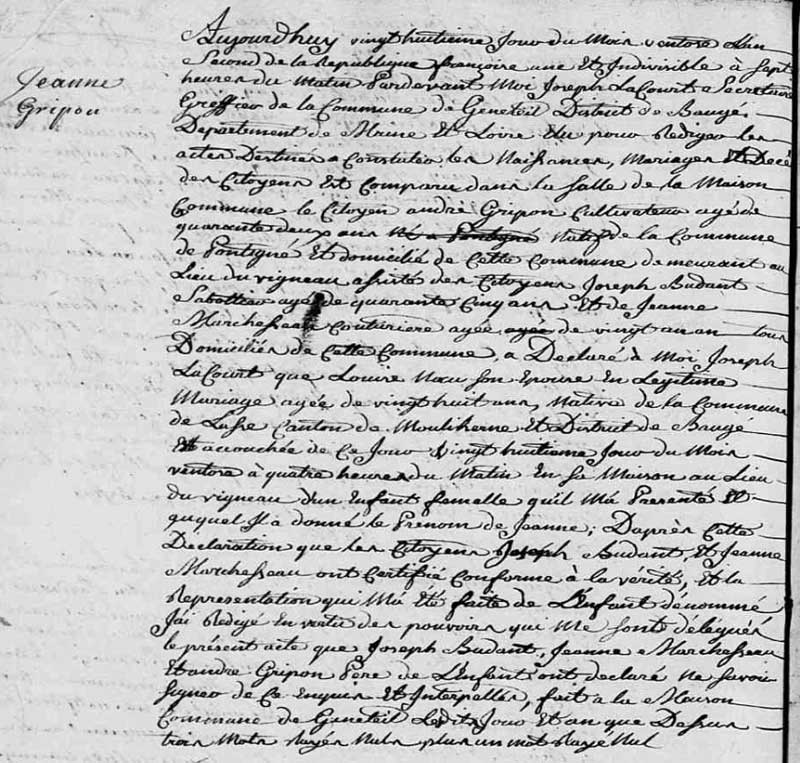 Jeanne
Gripon
Aujourdhuy vingt huitieme Jour du Mois ventose L'an
Second de la Republique françoise une Et Indivisible à Sept
heures du Matin Pardevant Moi Joseph LaCourt Secretaire
Greffier de la Commune de Geneteil District de Baugé
Departement de Maine Et Loire Elu pour Rediger les
actes Destinés a Constater les Naissances, Mariages Et Decè
des Citoyens Est Comparu dans la Salle de la Maison
Commune le Citoyen andré Gripon Cultivateur agé de
quarante deux ans Né a Pontigné Natif de la Commune
de Pontigné Et domicilié de Cette Commune demeurant au
Lieu du vigneau assisté des Citoyens Joseph Budant
Sabottier agé de quarante Cinq ans Et de Jeanne
Marchesseau Couturiere agée agée de vingt un an tous
Domiciliés de Cette Commune, a Declaré à Moi Joseph
LaCourt que Louise Nau Son Epouse En Legitime
Mariage agée de vingt huit ans, Native de la Commune
de Lasse Canton de Mouliherne Et District de Baugé
Est accouchée de Ce Jour vingt huitieme Jour du Mois
ventose à quatre heures du Matin En Sa Maison au Lieu
du vigneau d'un Enfant femelle qu'il M'a Presenté Et
auquel Il a donné le Prenom de Jeanne; Daprès Cette
Déclaration que les Citoyens Joseph Budant, Et Jeanne
Marchesseau ont Certifié Conforme à la vérité, Et la
Representation qui M'a Eté faite de L'Enfant dénommé
J'ai Redigé En vertu des pouvoirs qui Me Sont délégués
le présent acte que Joseph Budant, Jeanne Marchesseau
Et andre Gripon Pere de L'Enfant ont declaré Ne Savoir
Signer de Ce Enquis Et Interpellés, fait a la Maison
Commune de Geneteil Ledit Jour Et an que Dessus
trois Mots Rayés Nuls plus un mot Rayé Nul